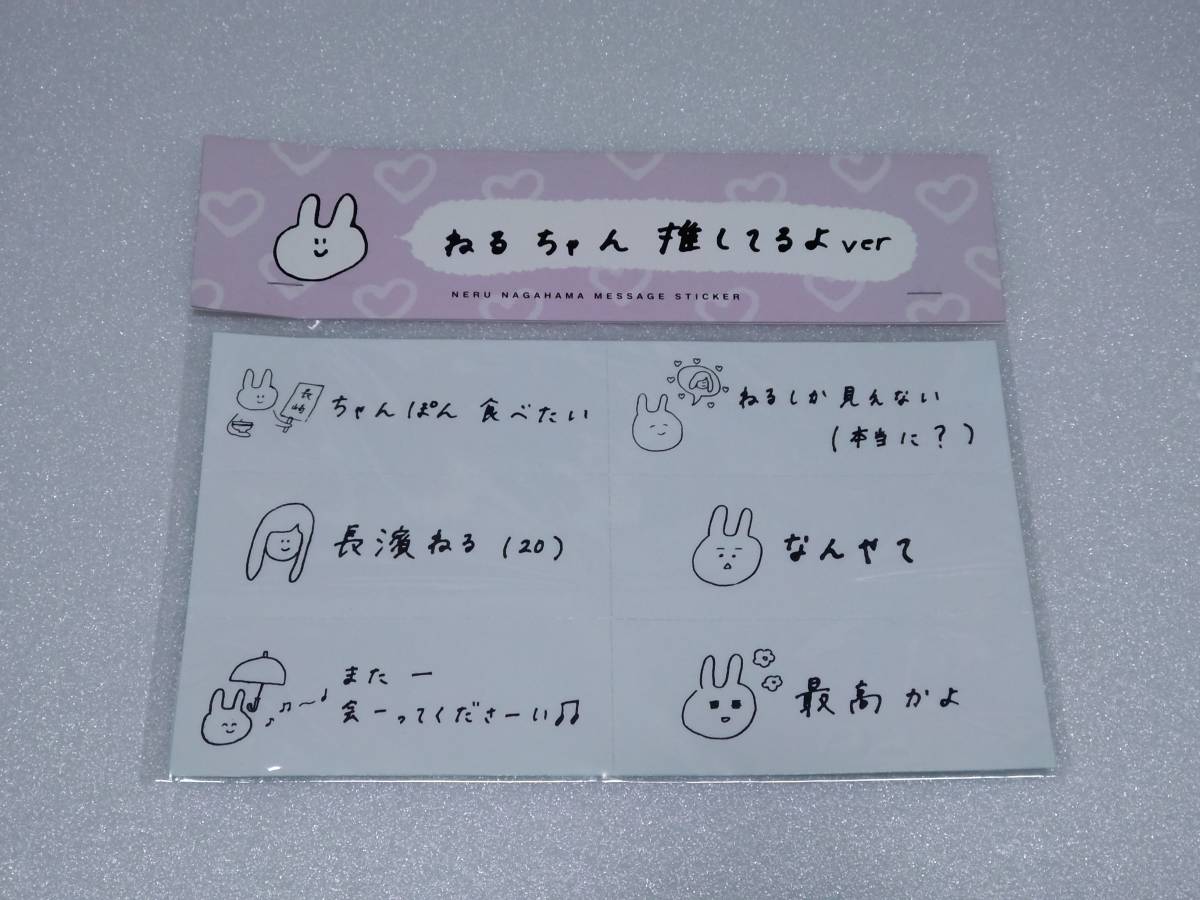 ねるちゃん 推してるよver
NERU NAGAHAMA MESSAGE STICKER
長崎
ちゃんぽん 食べたい
ねるしか見えない
(本当に?)
長濱ねる (20)
なんやて
またー
会ーってくださーい♫
最高かよ